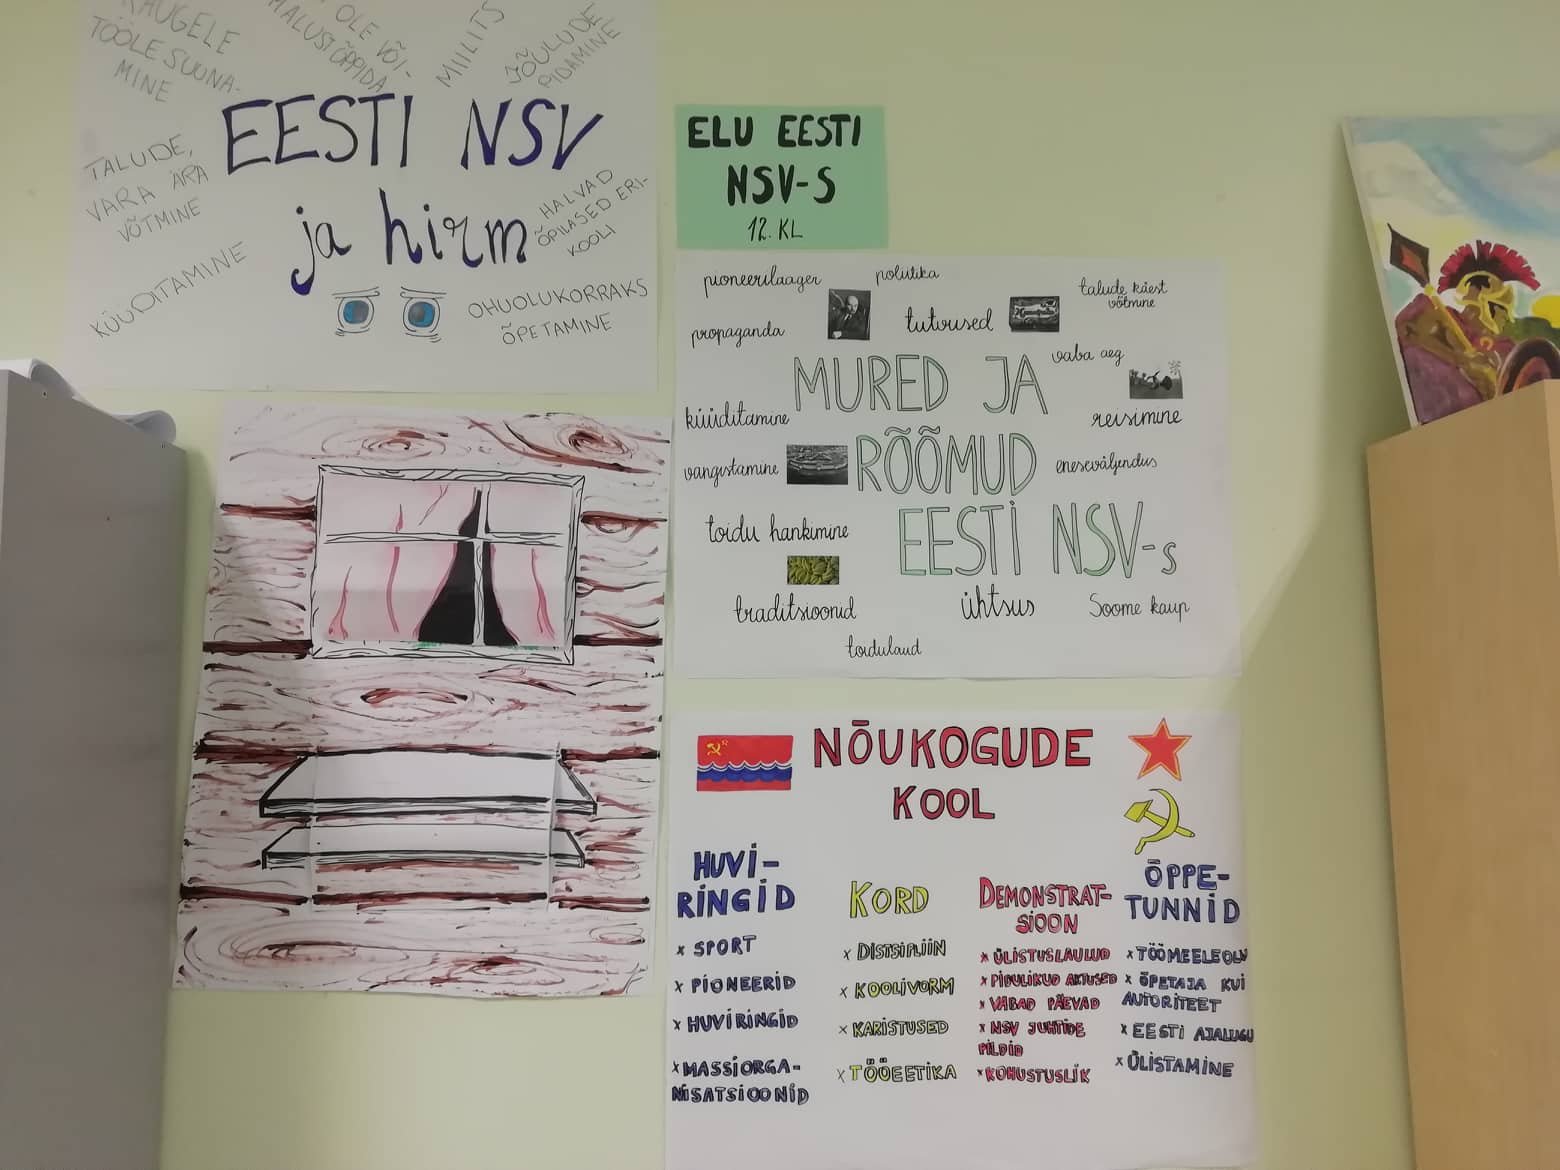 KAUGELE
TÖÖLE SUUNA-
MINE
OLE VÕI-
MALUST ÕPPIDA
MIILITS
JÕULUDE
PIDAMINE
EESTI NSV
ja hirm
TALUDE,
VARA ÄRA
VÕTMINE
HALVAD
ÕPILASED ERI-
KOOLI
KÜÜDITAMINE
OHUOLUKORRAKS
ÕPETAMINE
ELU EESTI
NSV-S
12. KL
pioneerilaager
poliitika
talude käest
võtmine
propaganda
tutvused
vaba aeg
MURED JA
küüditamine
reisimine
RÕÕMUD
vangistamine
eneseväljendus
toidu hankimine
EESTI NSV-s
traditsioonid
ühtsus
Soome kaup
toidulaud
NÕUKOGUDE
KOOL
HUVI-
RINGID
x SPORT
x PIONEERID
x HUVIRINGID
x MASSIORGA-
NISATSIOONID
KORD
x DISTSIPLIIN
x KOOLIVORM
x KARISTUSED
x TÖÖEETIKA
DEMONSTRAT-
SIOON
x ÜLISTUSLAULUD
x PIDULIKUD AKTUSED
x VABAD PÄEVAD
x NSV JUHTIDE
PILDID
x KOHUSTUSLIK
ÕPPE-
TUNNID
x TÖÖMEELEOLU
x ÕPETAJA KUI
AUTORITEET
x EESTI AJALUGU
x ÜLISTAMINE